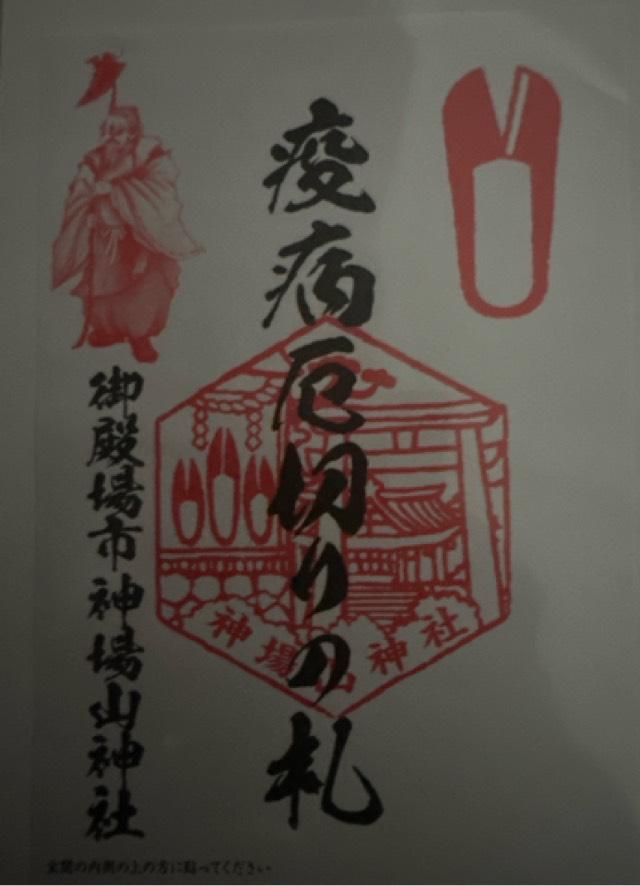 疫病厄切りの札
御殿場市神場山神社
神場山神社
玄関の内側の上の方に貼ってください